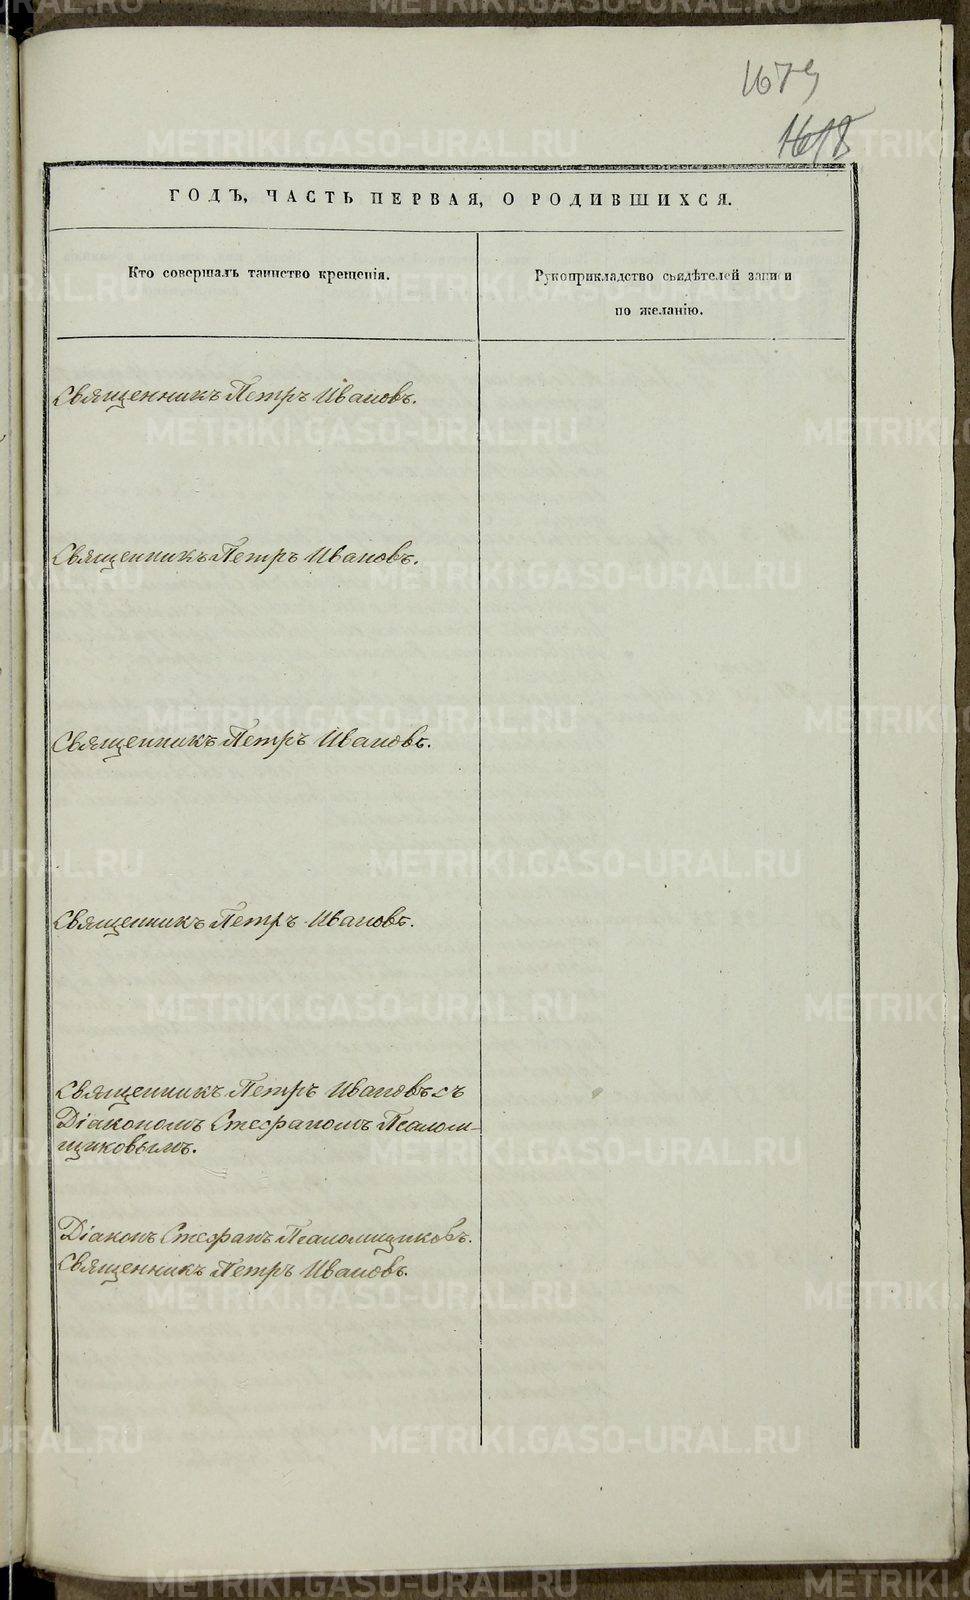 1679
1618
ГОДЪ, ЧАСТЬ ПЕРВАЯ, О РОДИВШИХСЯ.
Кто совершалъ таинство крещенія.
Рукоприкладство свидѣтелей записи
по желанію.
Священникъ Петръ Ивановъ.
Священникъ Петръ Ивановъ.
Священникъ Петръ Ивановъ.
Священникъ Петръ Ивановъ.
Священникъ Петръ Ивановъ съ
Діакономъ Стефаномъ Псалом-
щиковымъ.
Діаконъ Стефанъ Псаломщиковъ.
Священникъ Петръ Ивановъ.
METRIKI.GASO-URAL.RU